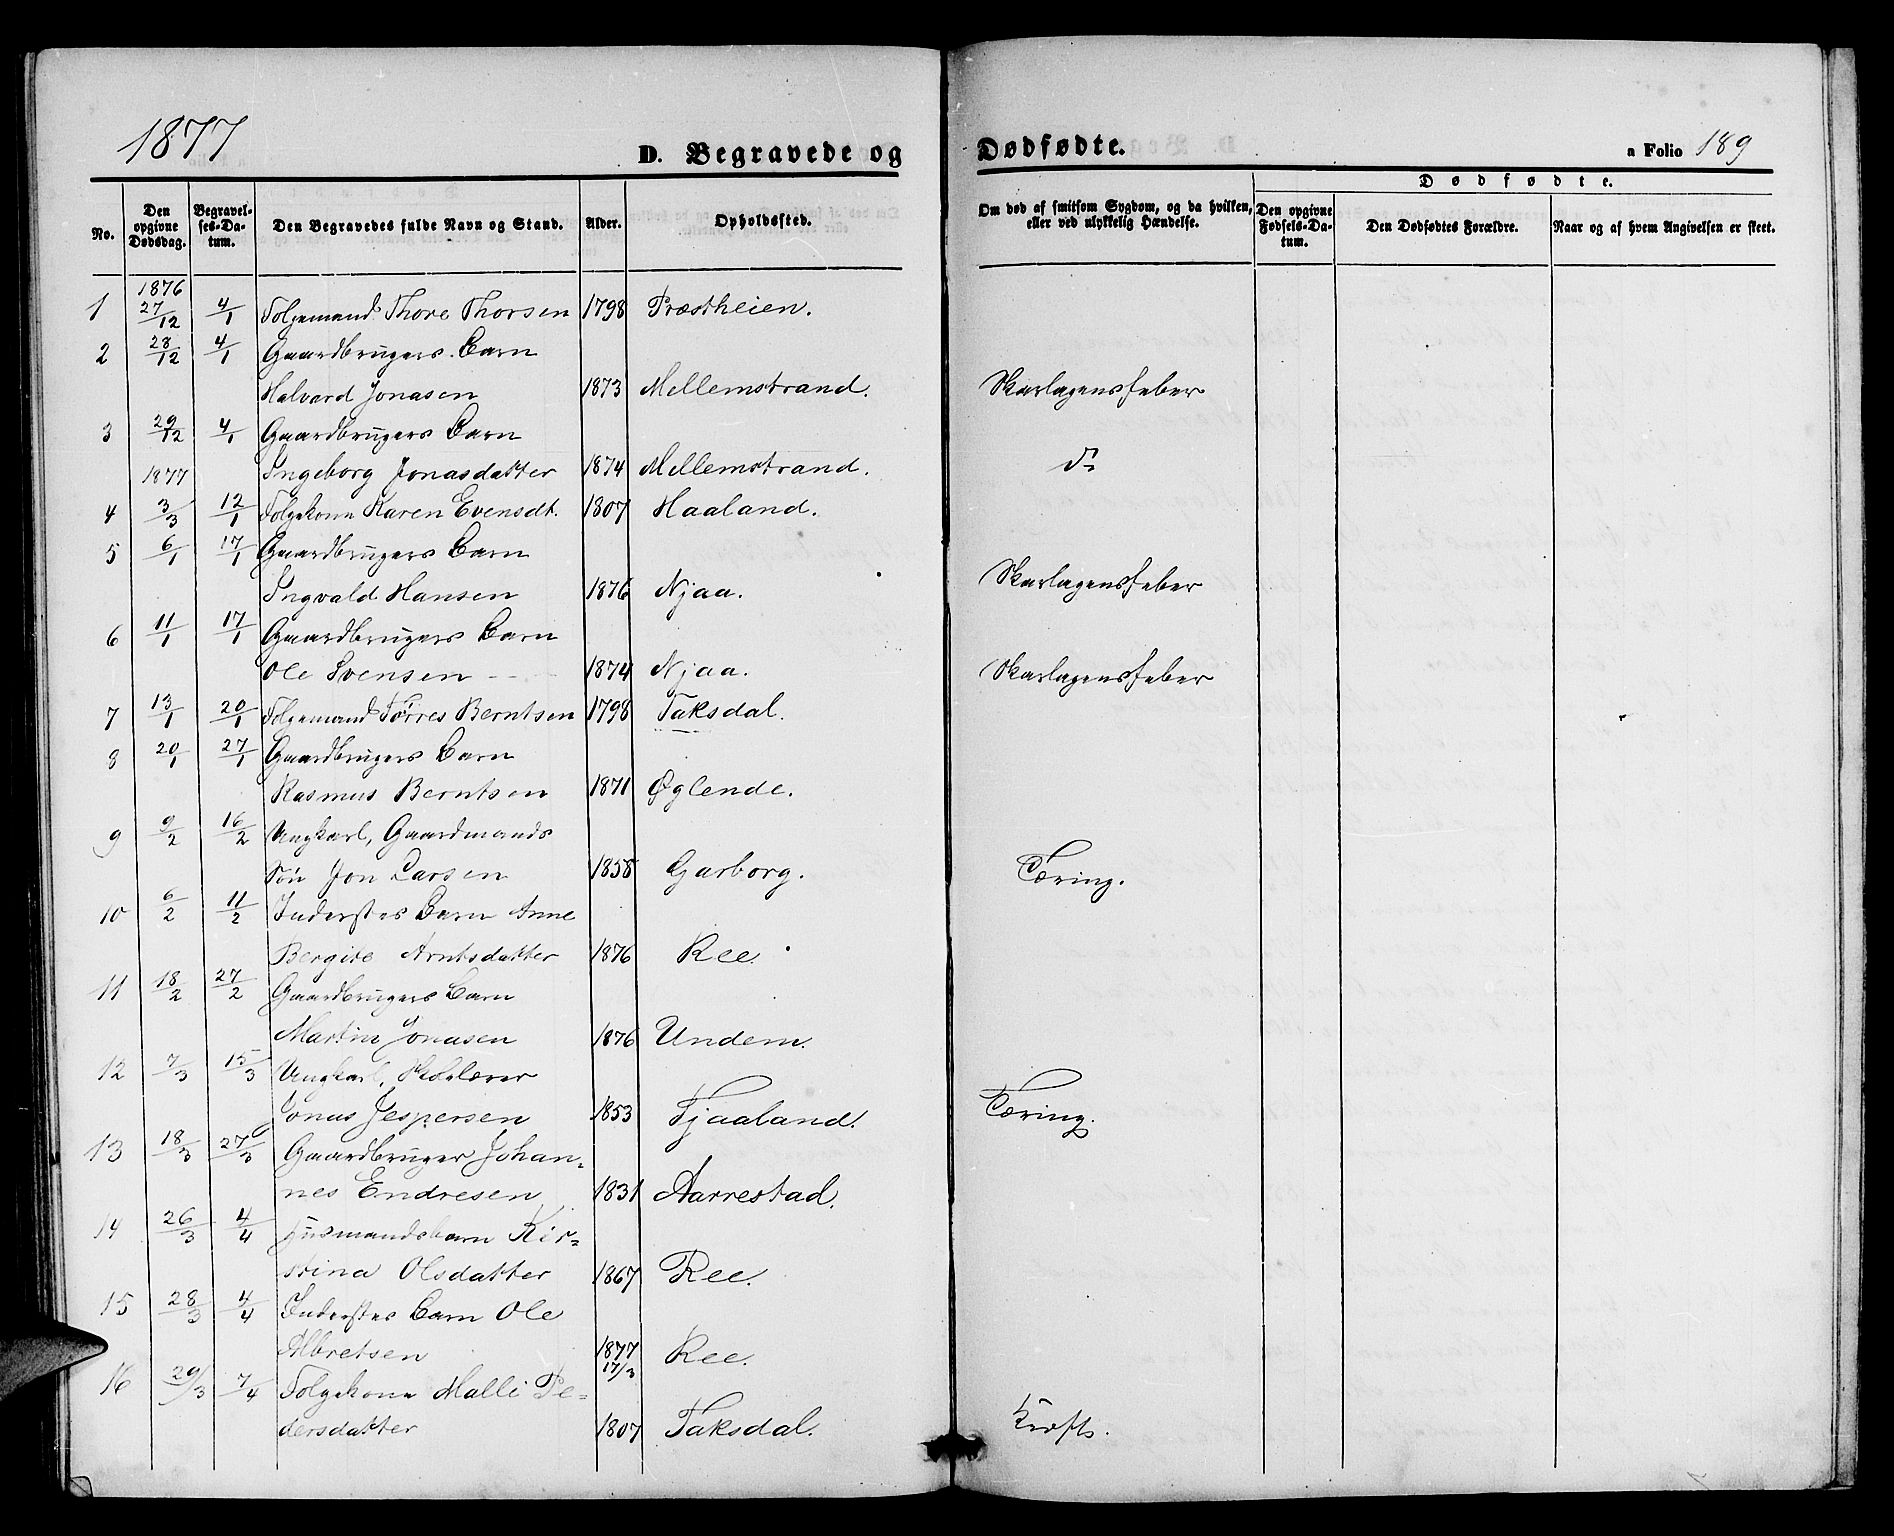 1877
D. Begravede og Dødfødte.
a Folio 189
No.
Den opgivne Dødsdag.
Begravelses-Datum.
Den Begravedes fulde Navn og Stand.
Alder.
Opholdssted.
Om død af smitsom Sygdom, og da hvilken, eller ved ulykkelig Hændelse.
Dødfødte.
Den opgivne Fødsels-Datum.
Den Dødfødtes Forældre.
Naar og af hvem Angivelsen er skeet.
1876
1 27/12 4/1 Folgemand Thore Thorsen 1798 Præstheien.
2 28/12 4/1 Gaardbrugers Barn
Halvard Jonasen 1873 Mellemstrand. Skarlagensfeber
3 29/12 4/1 Gaardbrugers Barn
1877 Ingeborg Jonasdatter 1874 Mellemstrand. do
4 3/3 12/1 Folgekone Karen Evensdt. 1807 Haaland.
5 6/1 17/1 Gaardbrugers Barn
Ingvald Hansen 1876 Njaa. Skarlagensfeber
6 11/1 17/1 Gaardbrugers Barn
Ole Svensen 1874 Njaa. Skarlagensfeber
7 13/1 20/1 Folgemand Tørres Berntsen 1798 Taksdal.
8 20/1 27/1 Gaardbrugers Barn
Rasmus Berntsen 1871 Øglende.
9 9/2 16/2 Ungkarl, Gaardmands
Søn Jon Larsen 1858 Garborg. Tæring.
10 6/2 11/2 Inderstes Barn Anne
Bergite Arntsdatter 1876 Ree.
11 18/2 27/2 Gaardbrugers Barn
Martin Jonasen 1876 Undem.
12 7/3 15/3 Ungkarl, Skolelærer
Jonas Jespersen 1853 Tjaaland. Tæring.
13 18/3 27/3 Gaardbruger Johan-
nes Endresen 1831 Aarrestad.
14 26/3 4/4 Husmandsbarn Kir-
stina Olsdatter 1867 Ree.
15 28/3 4/4 Inderstes Barn Ole
Albretsen 1877 17/3 Ree.
16 29/3 7/4 Folgekone Malli Pe-
dersdatter 1807 Taksdal. Kræft.